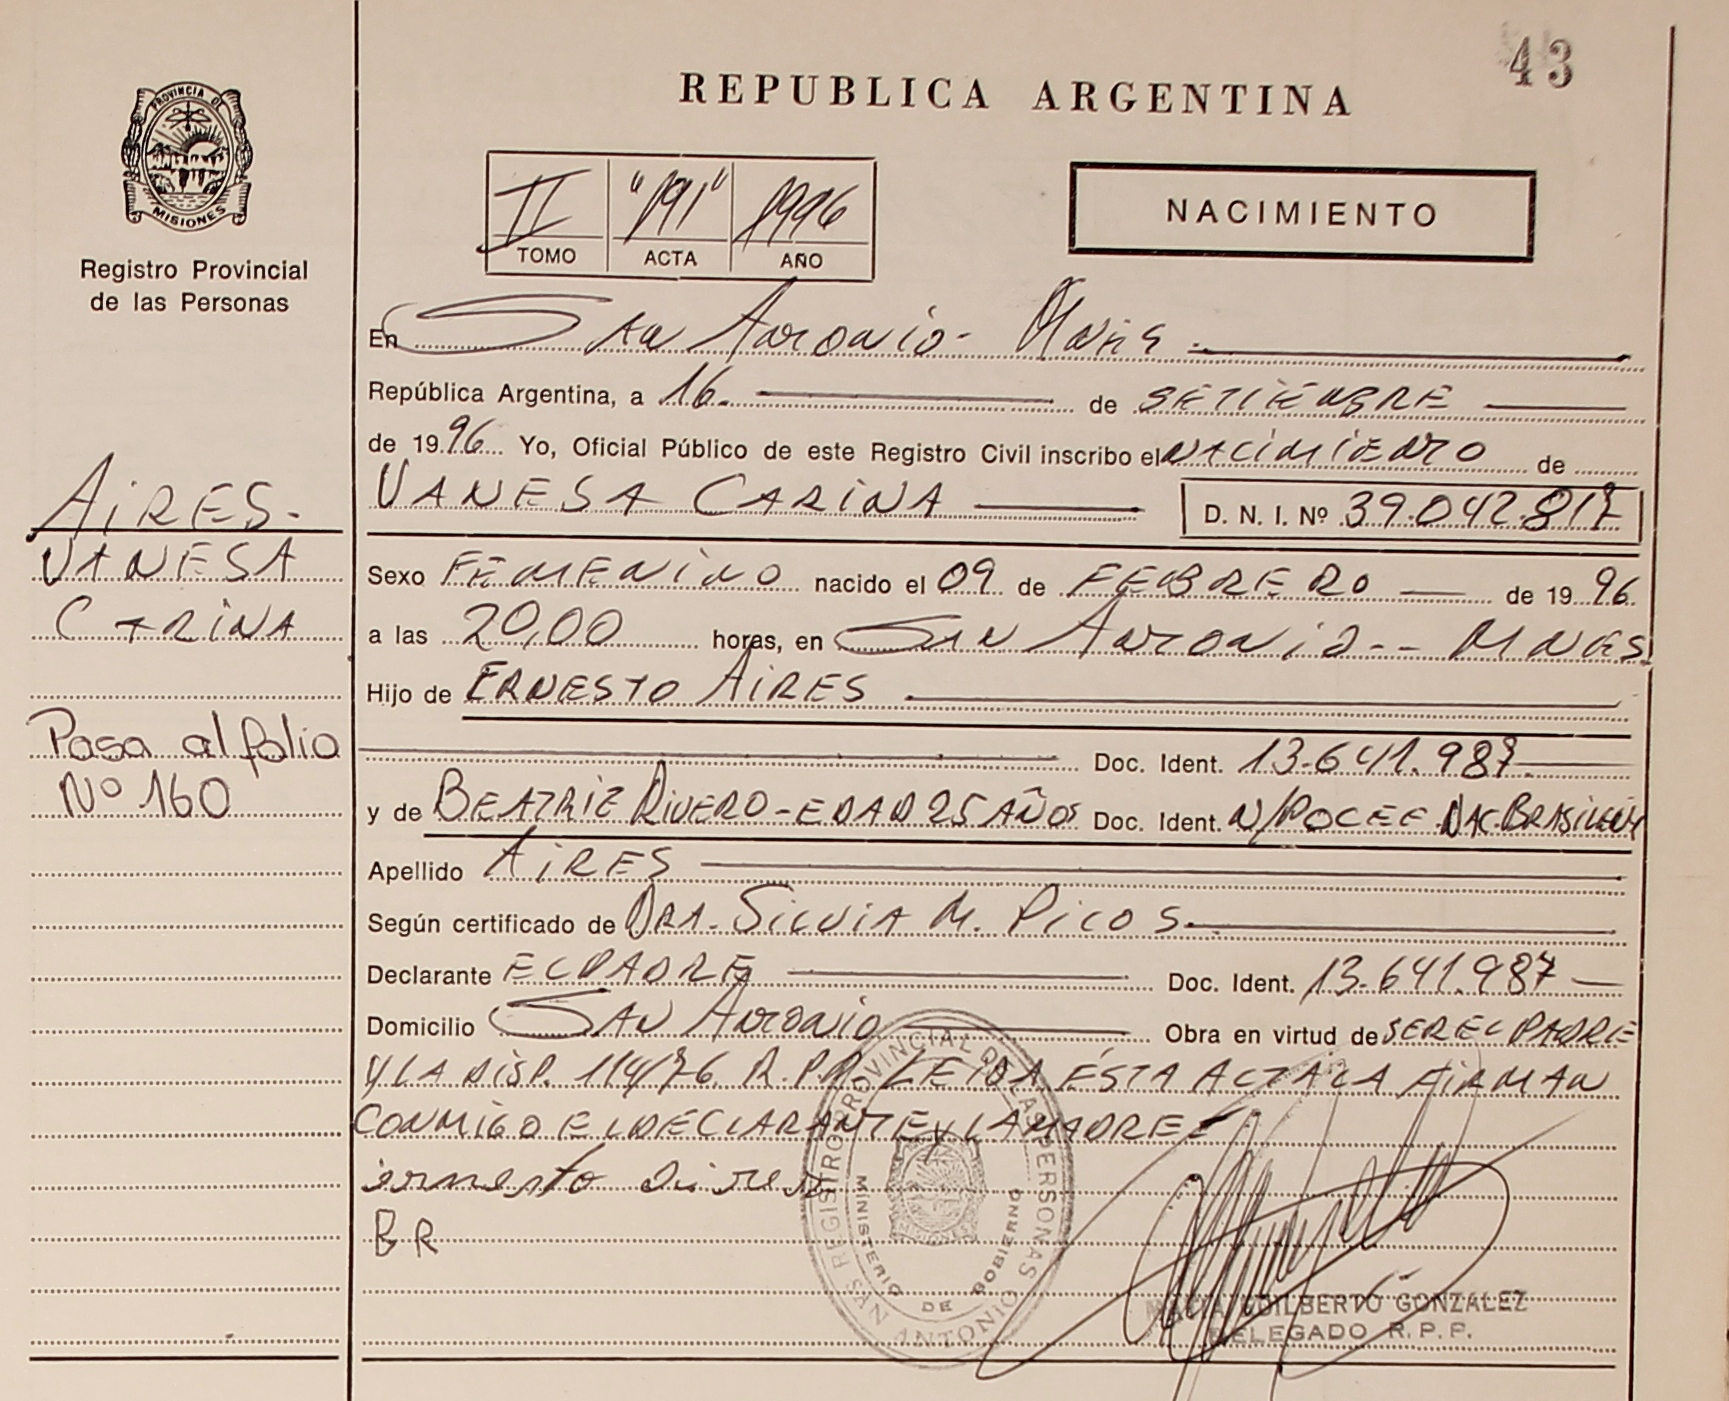 43
REPUBLICA ARGENTINA
PROVINCIA DE
MISIONES
Registro Provincial
de las Personas
II "191" 1996
TOMO ACTA AÑO
NACIMIENTO
En San Antonio-
República Argentina, a 16. de SETIEMBRE
de 1996. Yo, Oficial Público de este Registro Civil inscribo el NACIMIENTO de
VANESA CARINA D. N. I. Nº 39.042.817
AIRES-
VANESA
CARINA
Sexo FEMENINO nacido el 09 de FEBRERO de 1996.
a las 20,00 horas, en SAN ANTONIO-- MNES
Hijo de ERNESTO AIRES
Pasa al folio
Nº 160
Doc. Ident. 13.641.987
y de BEATRIZ RIVERO-EDAD 25 AÑOS Doc. Ident. N/POCEE NAC.
Apellido AIRES
Según certificado de DRA. SILVIA M. PICOS
Declarante EL PADRE Doc. Ident. 13.641.987
Domicilio SAN ANTONIO Obra en virtud de SER EL PADRE
Y LA DISP. 114/76. R.P.P. LEIDA ÉSTA ACTA LA FIRMAN
CONMIGO EL DECLARANTE Y LA MADRE-
ernesto aires
BR
REGISTRO PROVINCIAL DE LAS PERSONAS
MINISTERIO DE GOBIERNO
SAN ANTONIO
GONZALEZ
DELEGADO R. P. P.